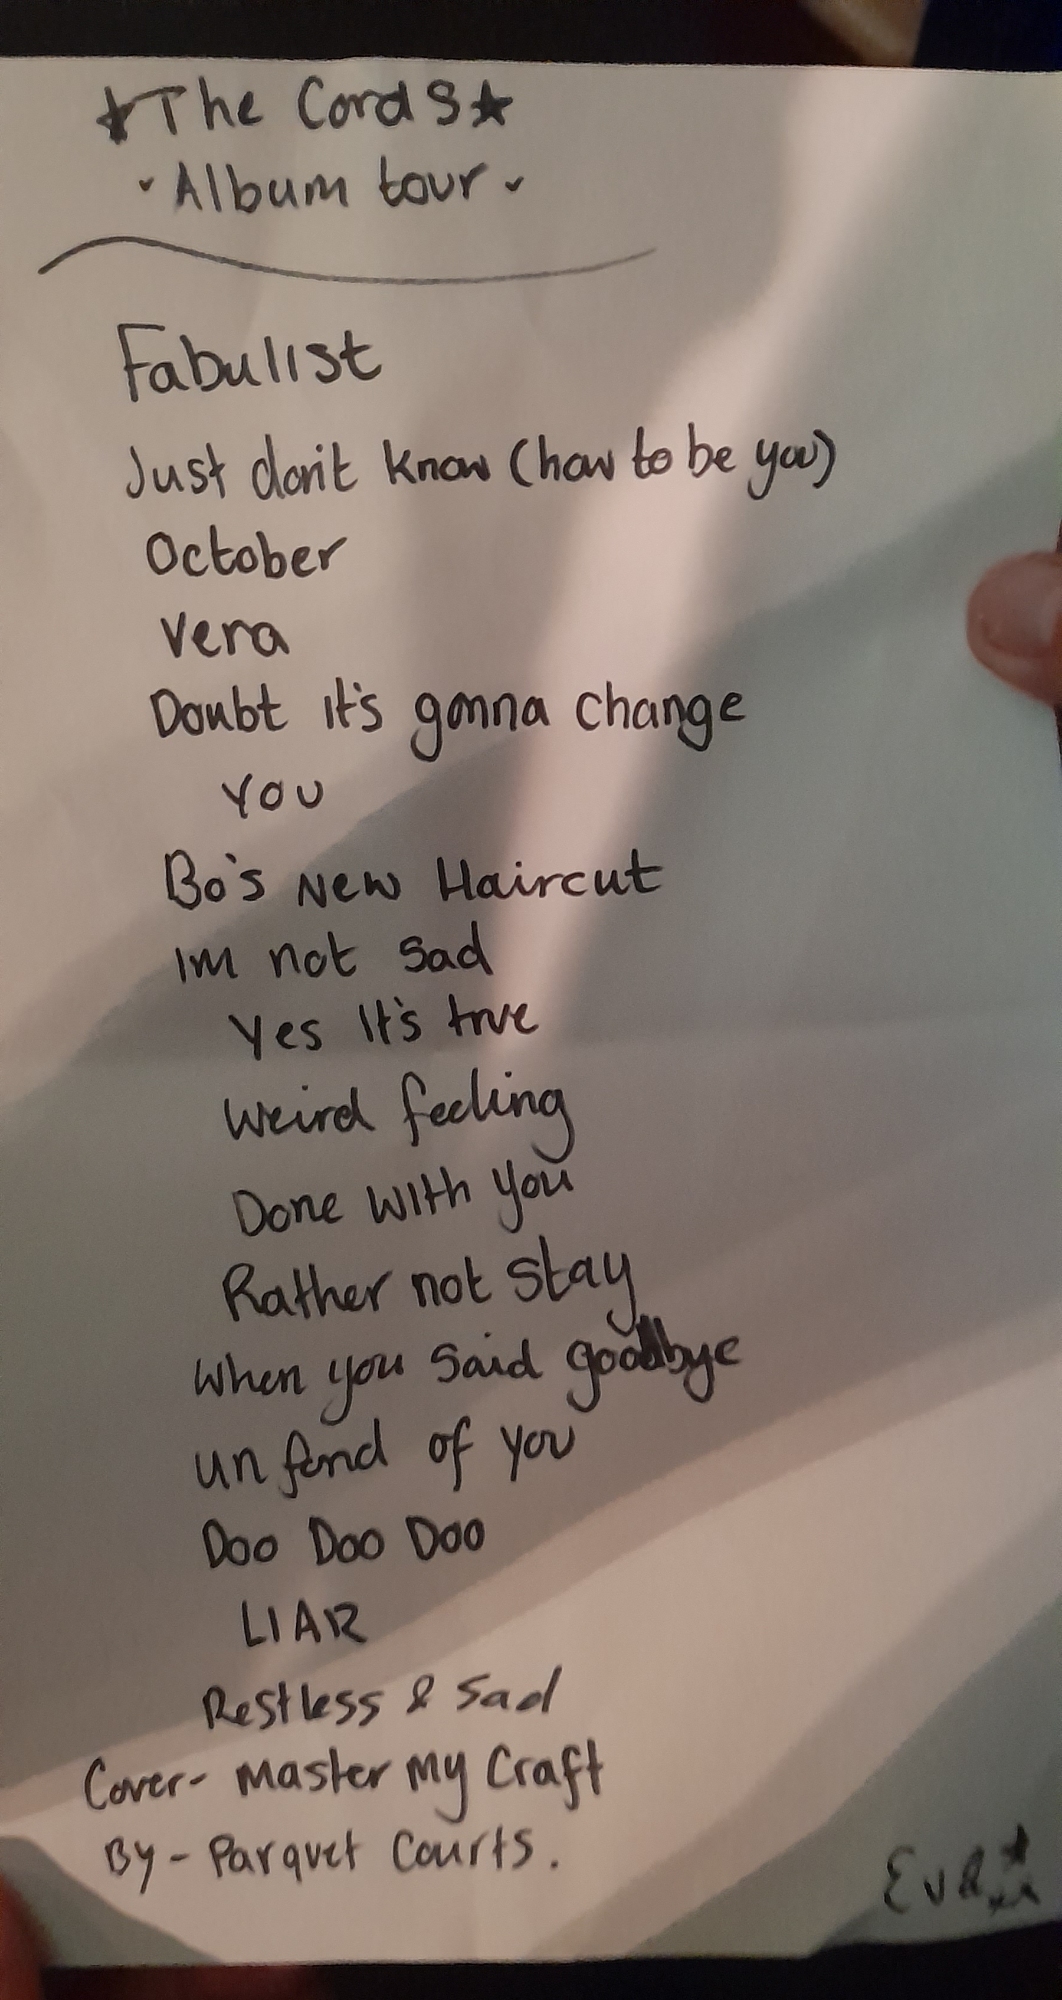 ★The Cords★
- Album tour -
Fabulist
Just don't know (how to be you)
October
Vera
Doubt it's gonna change
YOU
Bo's New Haircut
Im not sad
Yes It's true
Weird feeling
Done with you
Rather not stay
When you said goodbye
unfond of you
Doo Doo Doo
LIAR
Restless & Sad
Cover- Master My Craft
By - Parquet Courts.
Eva